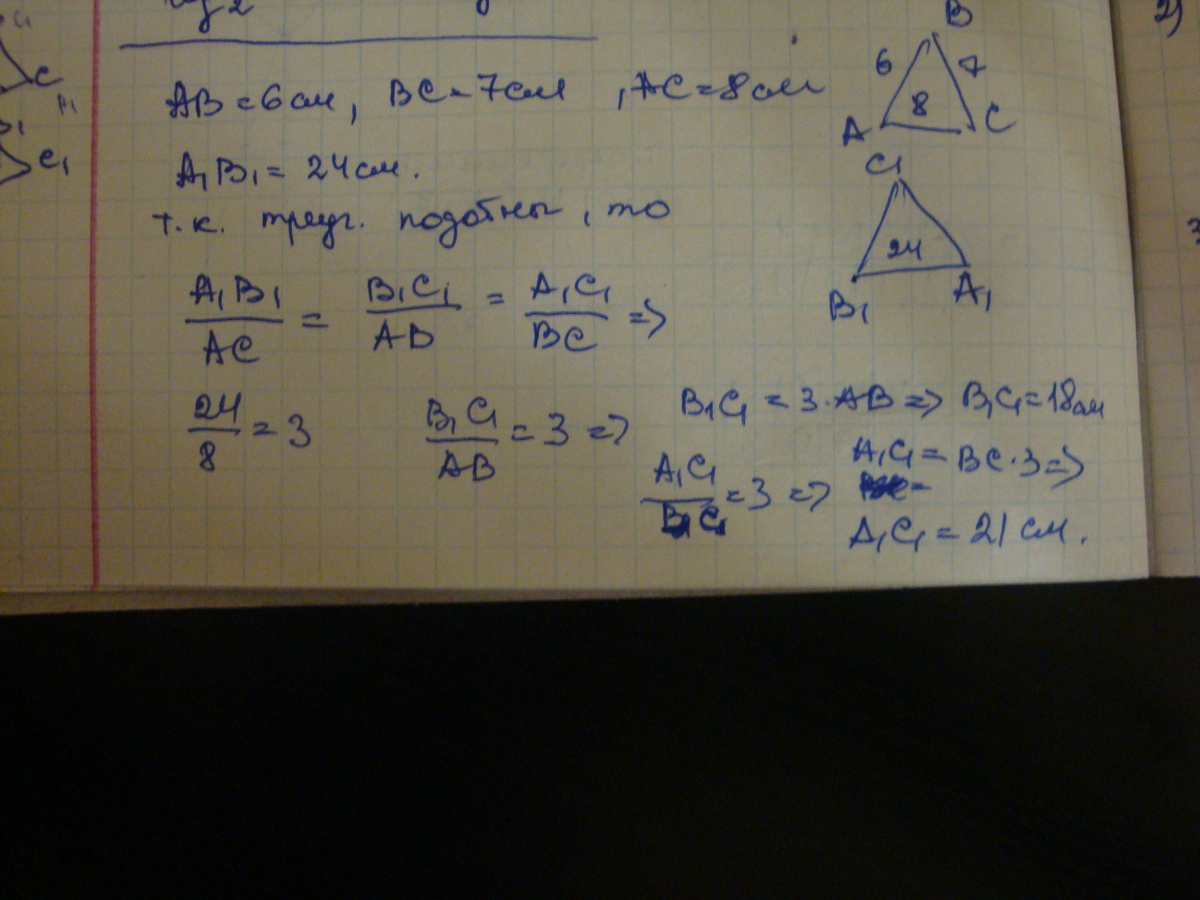 AB = 6 см, BC = 7 см, AC = 8 см
A₁B₁ = 24 см.
т.к. треуг. подобны, то
A₁B₁/AC = B₁C₁/AB = A₁C₁/BC =>
24/8 = 3
B₁C₁/AB = 3 =>
B₁C₁ = 3·AB => B₁C₁ = 18 см
A₁C₁/BC = 3 =>
A₁C₁ = BC·3 =>
A₁C₁ = 21 см.
B
6 7
8
A C
C₁
24
B₁ A₁
2)
C
C₁